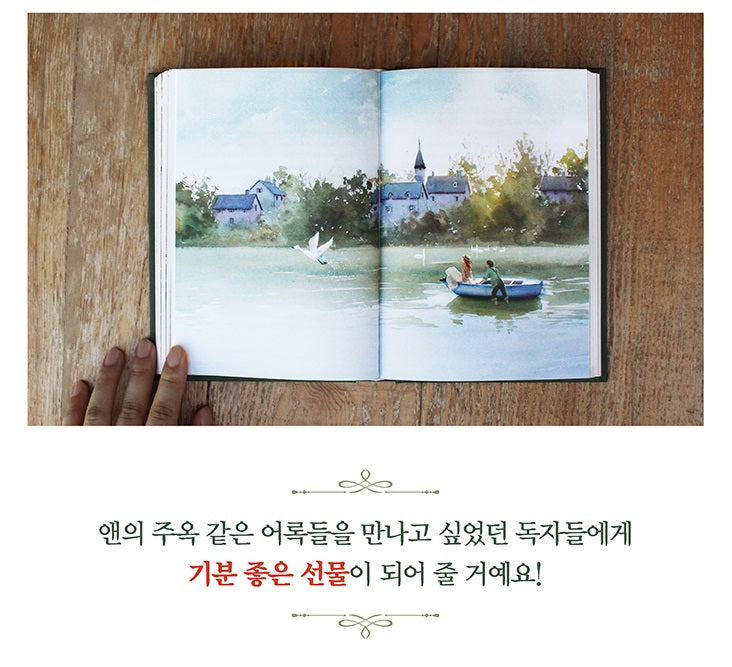 앤의 주옥 같은 어록들을 만나고 싶었던 독자들에게
기분 좋은 선물이 되어 줄 거예요!